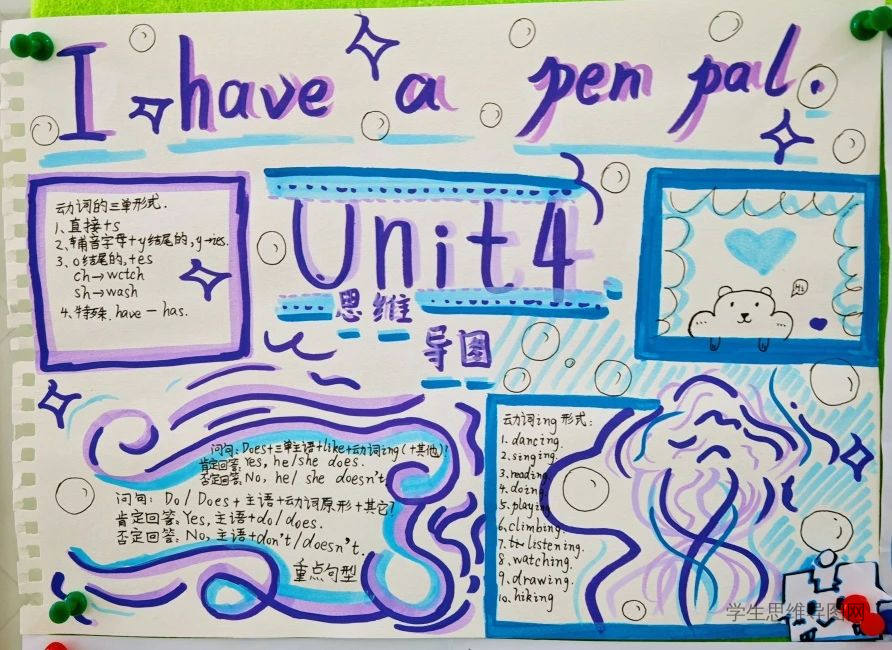 I have a pen pal.
Unit4
思维
导图
动词的三单形式.
1、直接+s
2、辅音字母+y结尾的,y→ies.
3、o结尾的,+es
ch→wctch
sh→wash
4、特殊.have—has.
Hi
问句:Does+三单主语+like+动词ing(+其他)?
肯定回答:Yes, he/she does.
否定回答:No, he/ she doesn't.
问句: Do/Does+主语+动词原形+其它?
肯定回答:Yes,主语+do/does.
否定回答:No,主语+don't/doesn't.
重点句型
动词ing形式:
1.dancing.
2.singing.
3.reading.
4.doing
5.playing
6.climbing.
7.listening.
8.watching.
9.drawing.
10.hiking
学生思维导图网